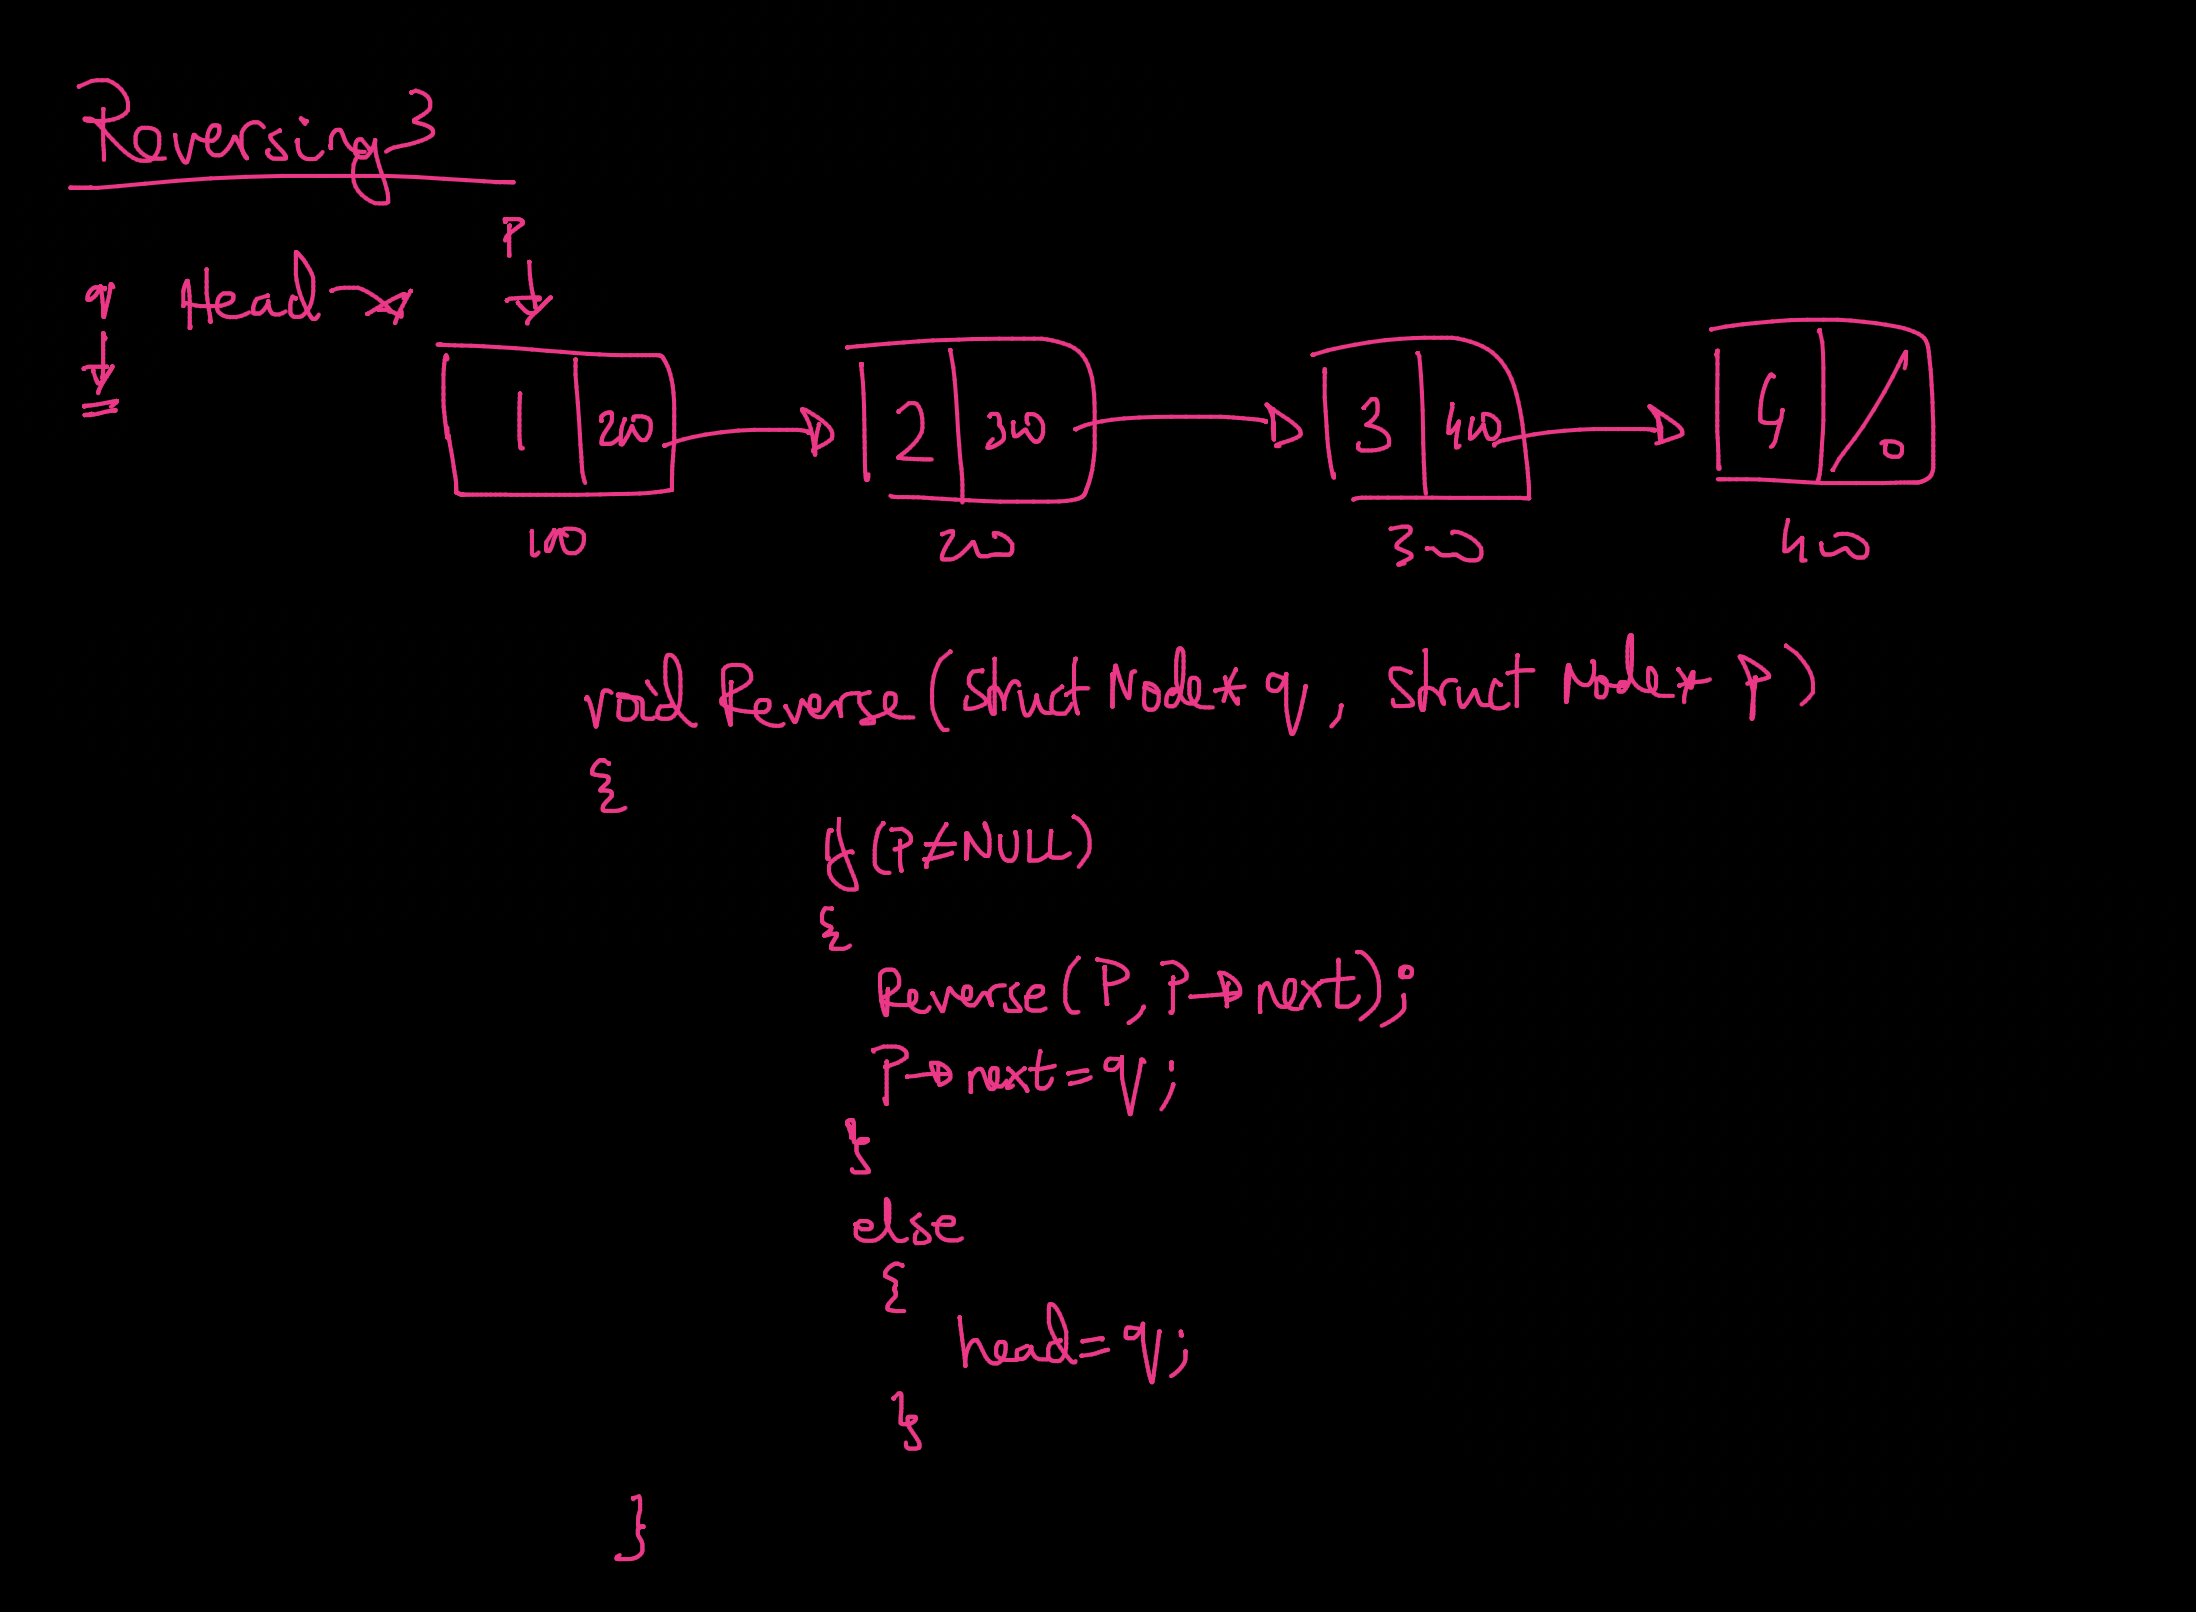 Reversing 3
P
q Head →
1 200 → 2 300 → 3 400 → 4 0
100 200 300 400
void Reverse (struct Node* q, struct Node* p)
{
if (P≠NULL)
{
Reverse (P, P→next);
P→next=q;
}
else
{
head=q;
}
}